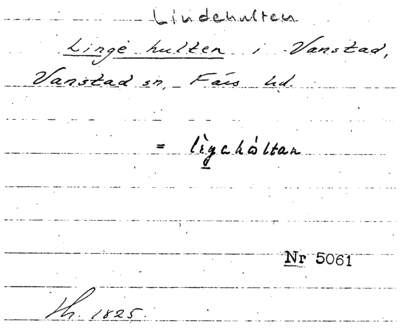 Lindehulten
Linge hulten i Vanstad,
Vanstad sn, Färs hd.
= lìŋeháltan
Nr 5061
Th. 1825.